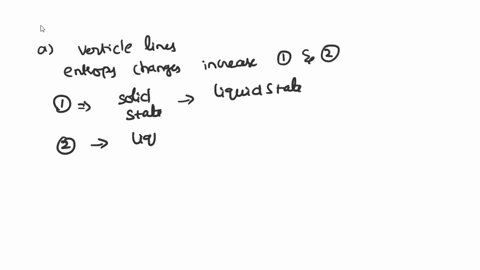 a) verticle lines
entropy changes increase ① & ②
① ⇒ solid state → liquid state
② → liq